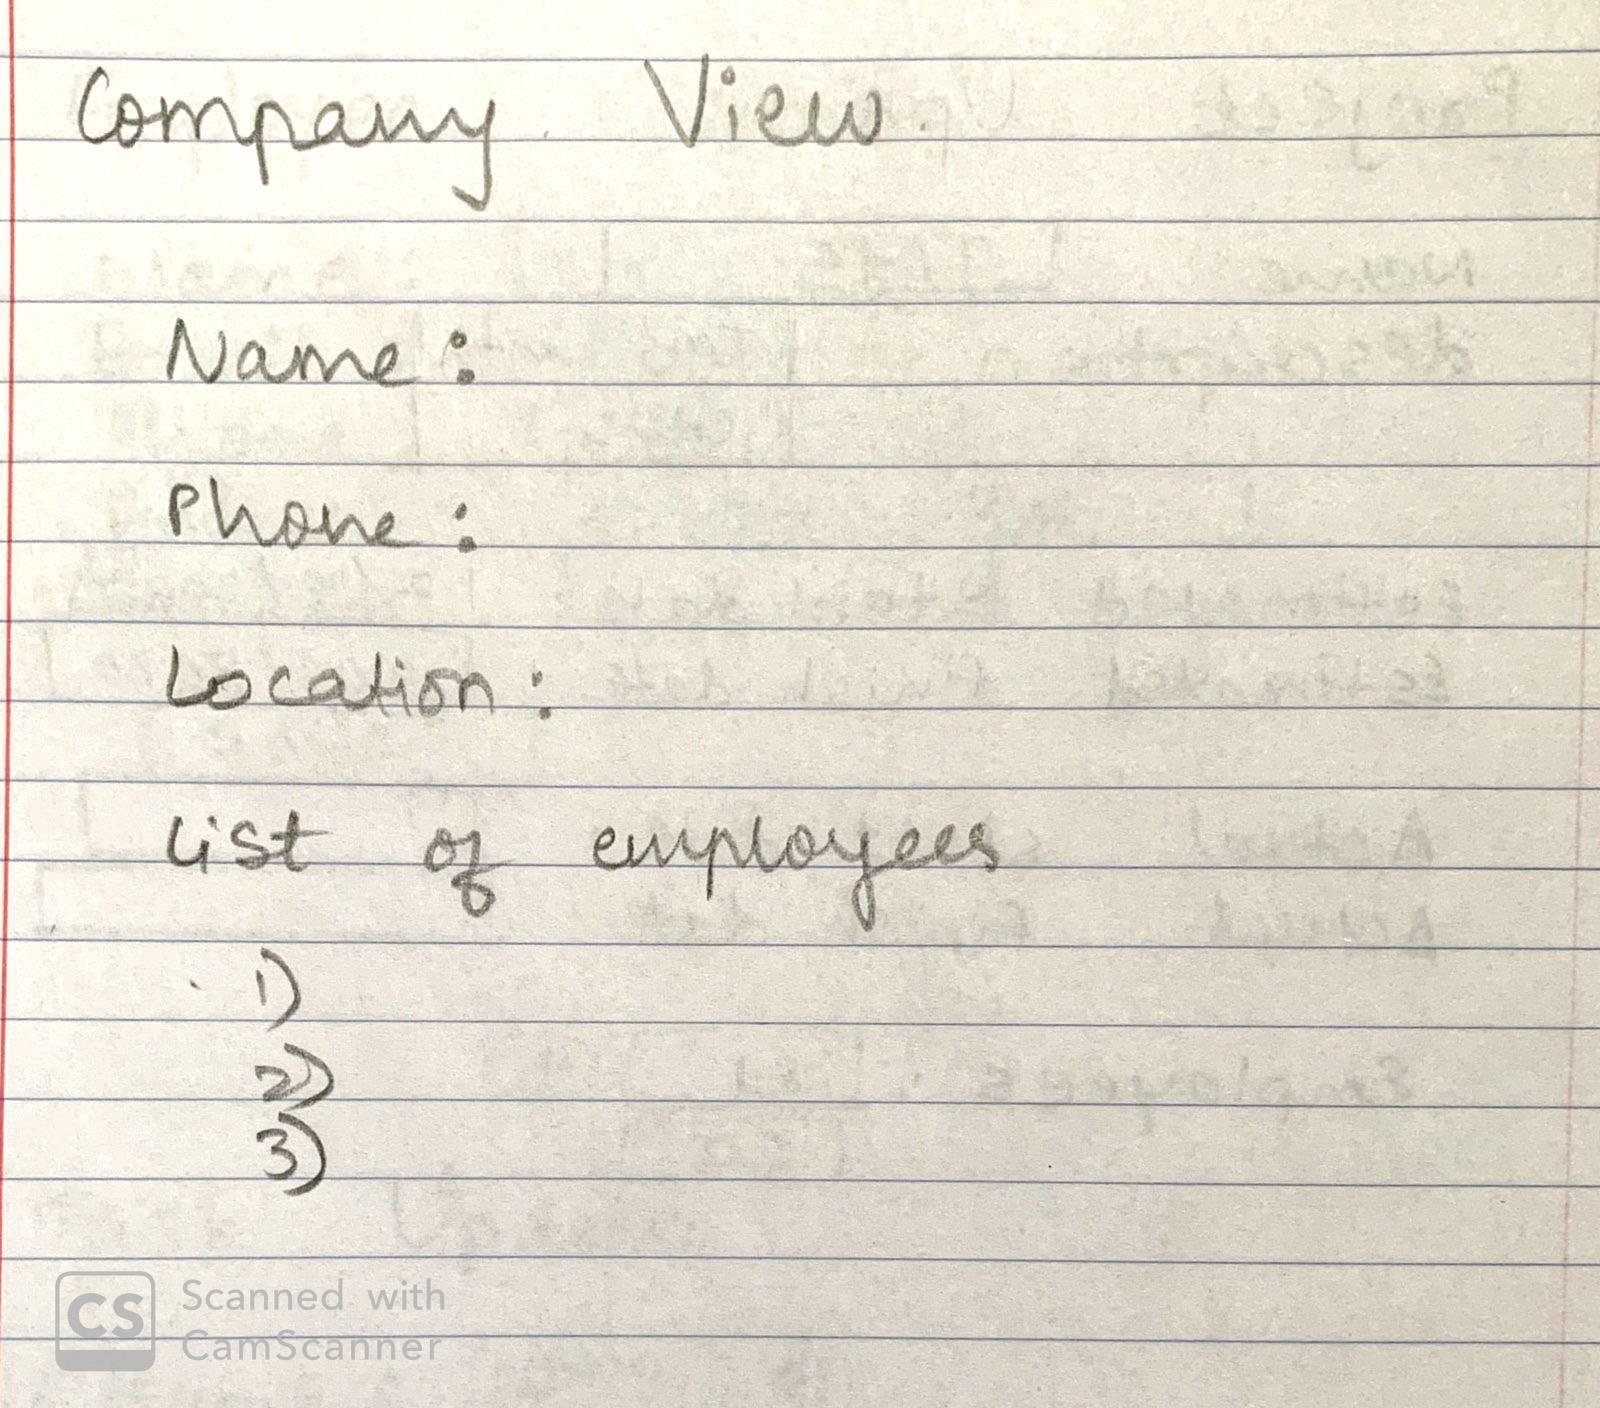 Company View.
Name:
Phone:
Location:
List of employees
1)
2)
3)
CS Scanned with
CamScanner